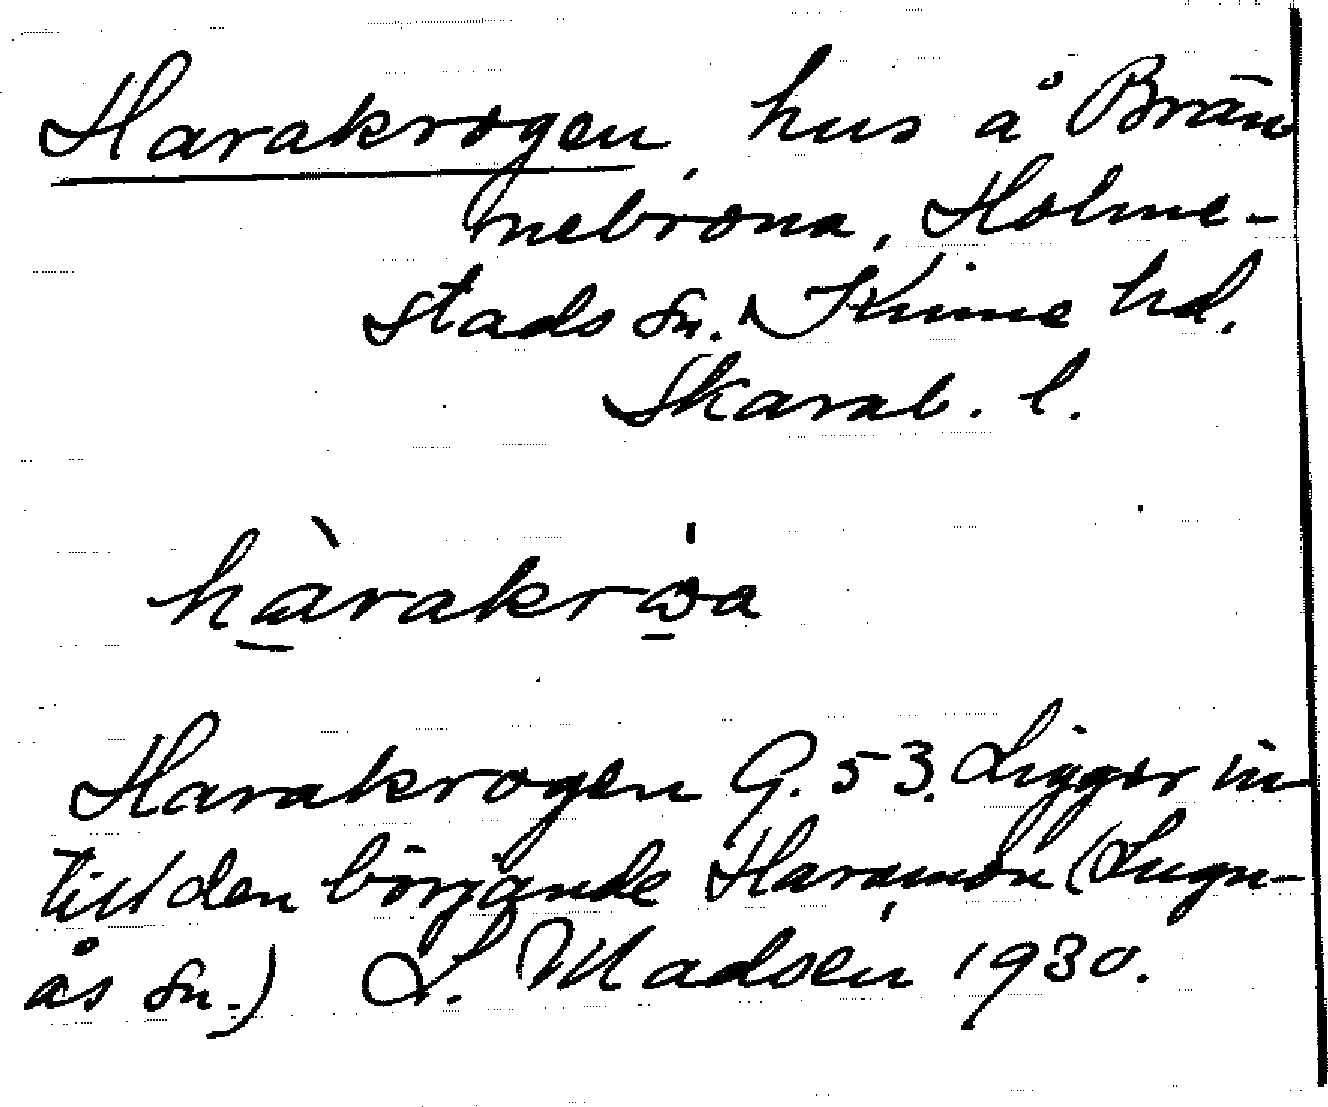 Harakrogen, hus å Brän
nebrona, Holme-
stads sn. Kinne hd.
Skarab. l.
hàrakrɷa
Harakrogen G. 53. Ligger in-
till den börjande Haramon (Lugn-
ås sn.) L. Madsén 1930.